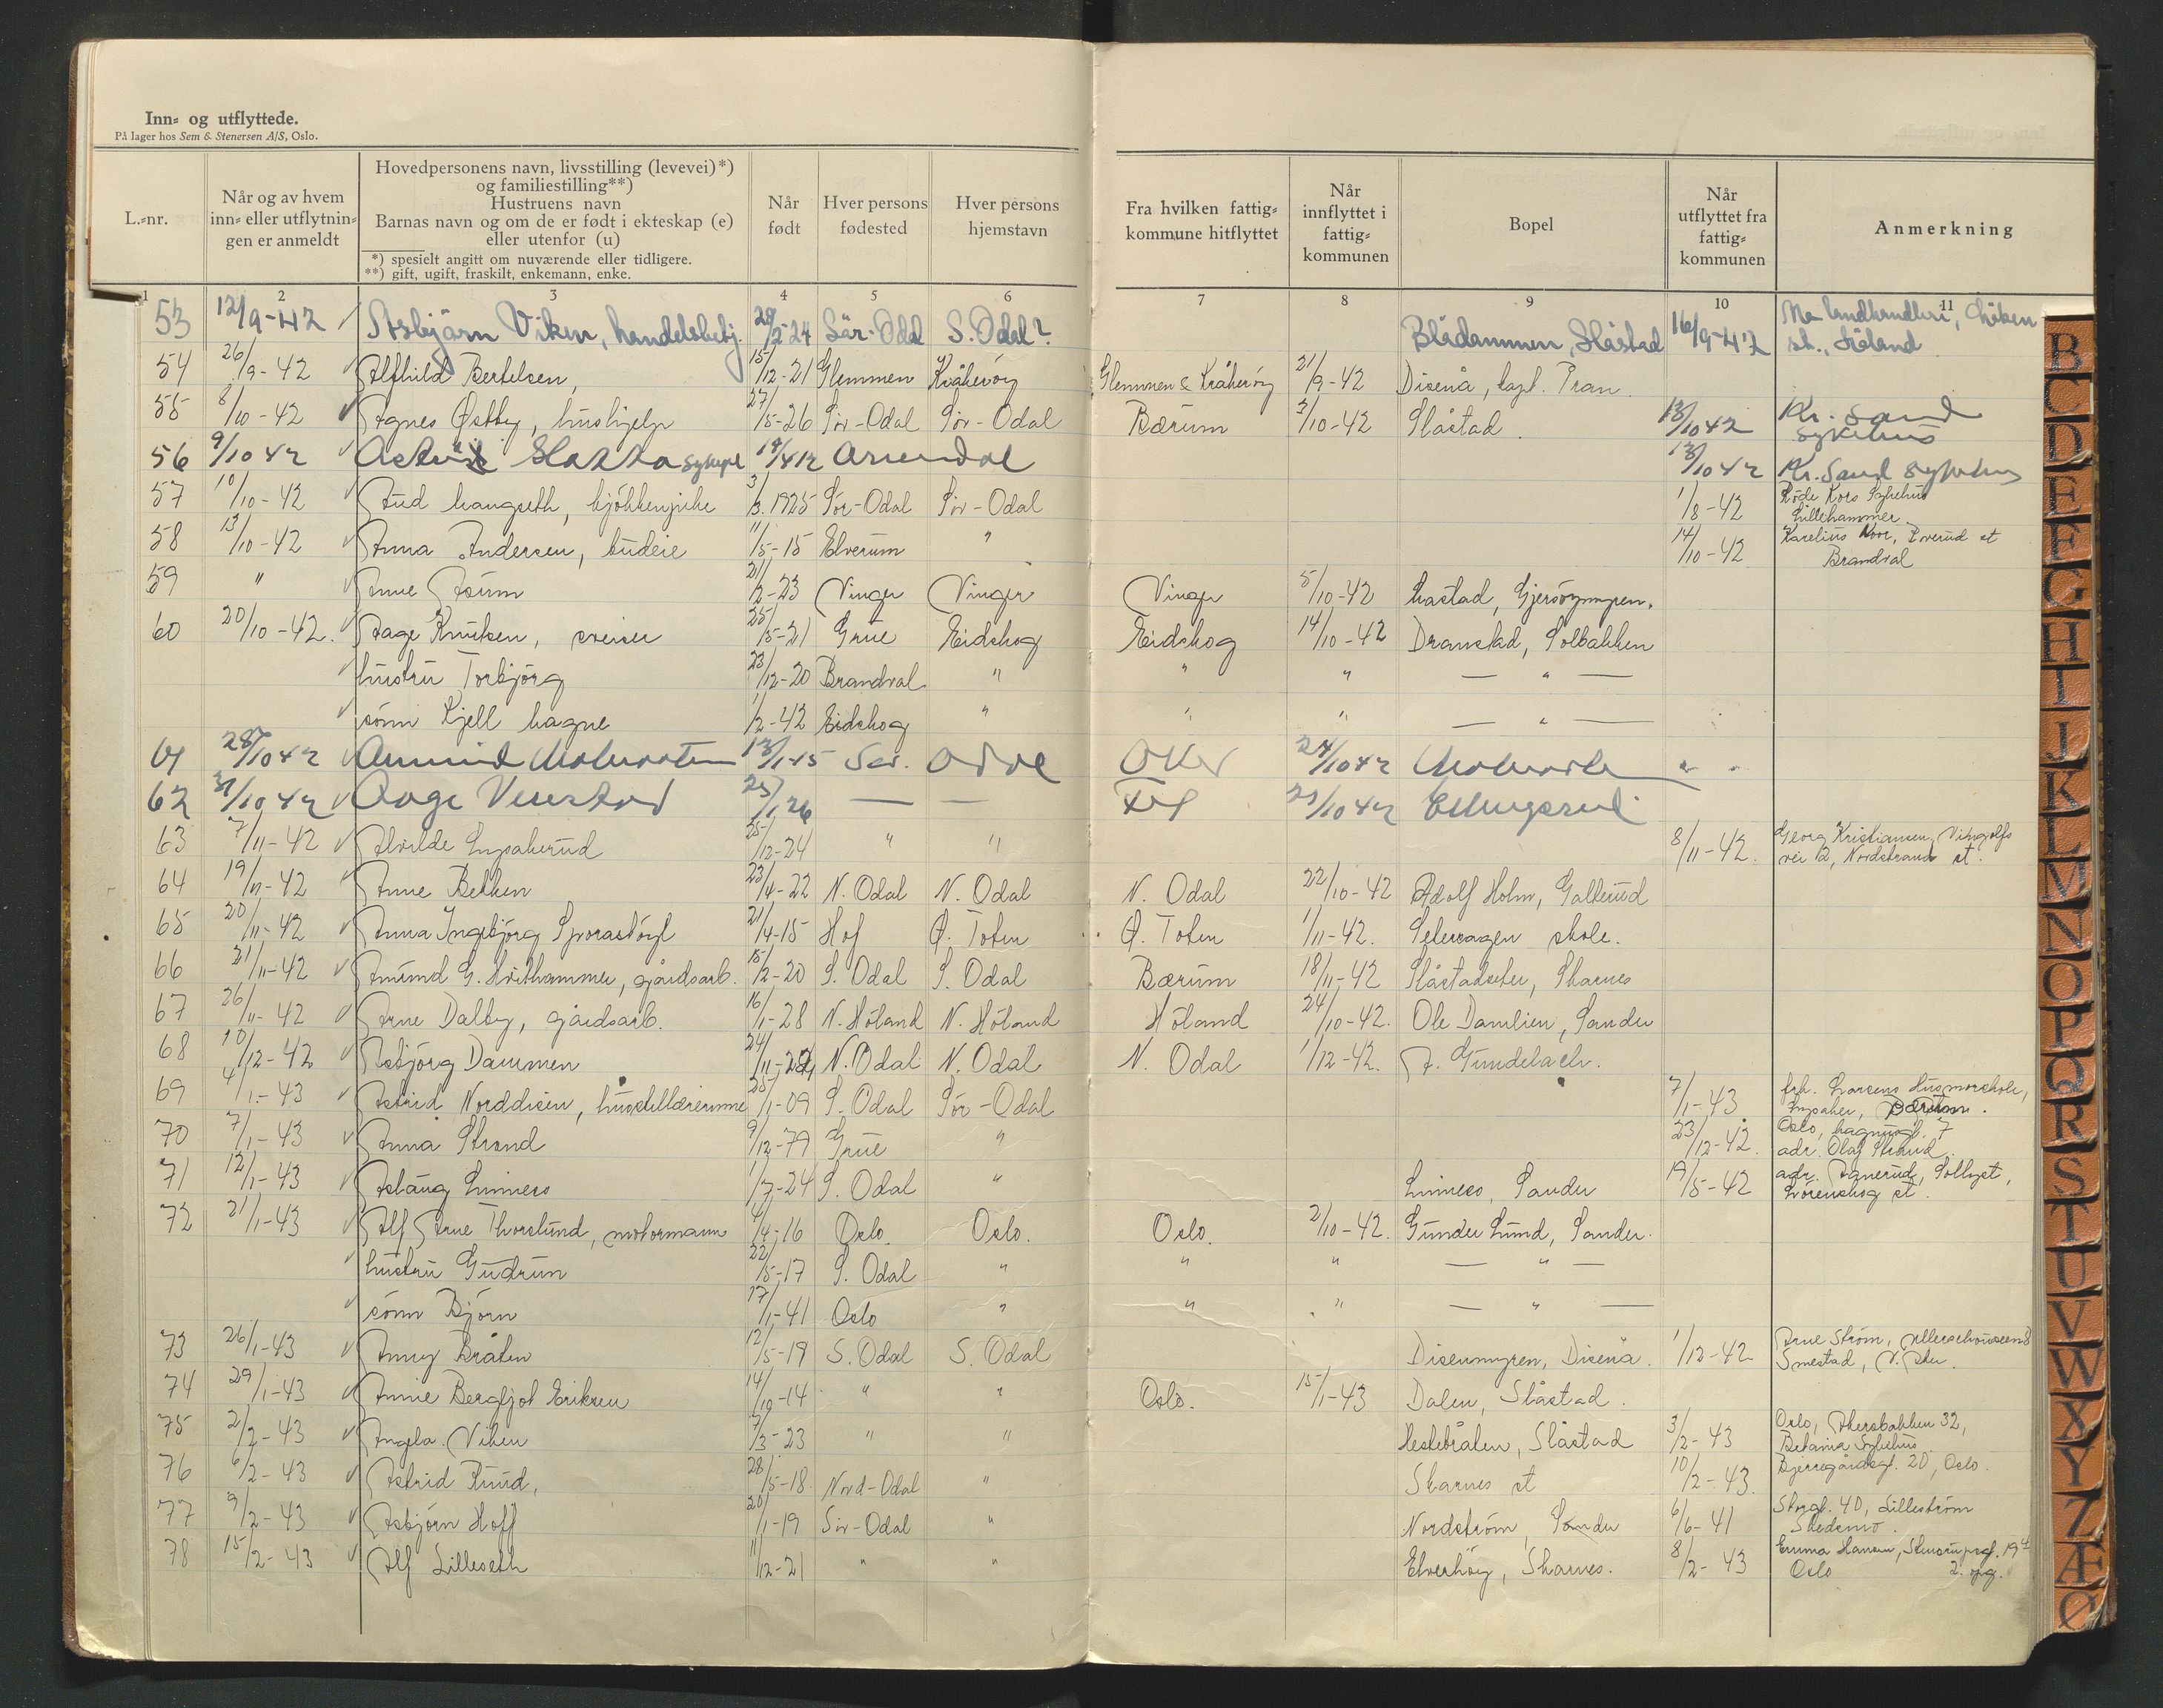 Inn- og utflyttede.
På lager hos Sem & Stenersen A/S, Oslo.
L.-nr.
Når og av hvem
inn- eller utflytnin-
gen er anmeldt
Hovedpersonens navn, livsstilling (levevei)*)
og familiestilling**)
Hustruens navn
Barnas navn og om de er født i ekteskap (e)
eller utenfor (u)
*) spesielt angitt om nuværende eller tidligere.
**) gift, ugift, fraskilt, enkemann, enke.
Når
født
Hver persons
fødested
Hver persons
hjemstavn
Fra hvilken fattig-
kommune hitflyttet
Når
innflyttet i
fattig-
kommunen
Bopel
Når
utflyttet fra
fattig-
kommunen
Anmerkning
1 2 3 4 5 6 7 8 9 10 11
53 12/9-42 Asbjørn Viken, handelsbetj. 28/2-24 Sør-Odal S. Odal? Blådammen, Slåstad 16/9-42 landhandleri,
st., Höland
54 26/9-42 Alfhild Bertelsen, 15/12-21 Glemmen Kråkeröy Glemmen & Kråkeröy 21/9-42 Disenå, kapt. Pran.
55 8/10-42 Agnes Østby, hushjelp 27/5-26 Sör-Odal Sör-Odal Bærum 3/10-42 Slåstad. 13/10 42 Kr. Sand
sykehus
56 9/10 42 Slatta sykepl 19/4 12 Arendal 13/10 42 Kr. Sand sykehus
57 10/10-42 Aud Langseth, kjökkenpike 3/3.1925 Sör-Odal Sör-Odal 1/8-42 Röde Kors Sykehus
Lillehammer
58 13/10-42 Anna Andersen, budeie 11/5-15 Elverum " 14/10-42 Karelius Noor, Roverud st
Brandval
59 " Anne Åsum 21/2-23 Vinger Vinger Vinger 5/10-42 Gjersöymyren.
60 20/10-42. Aage Knutsen, sveiser 25/5-21 Grue Eidskog Eidskog 14/10-42 Dranstad, Solbakken
hustru Torbjörg 23/12-20 Brandval " " " — " —
sönn Kjell Magne 1/2-42 Eidskog " " " — " —
61 28/10 42 Amund 13/1-15 Sör. Odal 24/10 42 " "
62 31/10 42 Aage 25/1 26 — — 21/10 42 Ellingsrud
63 7/11-42 Alvilde Lysakerud 25/12-24 " " 8/11-42. Georg Kristiansen, Vikingolfs
vei 2, Nordstrand st.
64 19/11-42 Anne Bekken 23/4-22 N. Odal N. Odal N. Odal 22/10-42 Adolf Holm, Galterud
65 20/11-42 Anna Ingebjörg 21/4-15 Hof Ø. Toten Ø. Toten 1/11-42. Seteraagen skole.
66 21/11-42 Amund G. Hvithammer, gårdsarb. 15/2-20 S. Odal S. Odal Bærum 18/11-42 Slåstadseter, Skarnes
67 26/11-42 Arne Dalby, gårdsarb. 16/1-28 N. Höland N. Höland Höland 24/10-42. Ole Damlien, Sander
68 10/12-42 Asbjörg Dammen 24/11-22 N. Odal N. Odal N. Odal 1/12-42. A. Gundelach.
69 4/1-43 Astrid Norddisen, husstellærerinne 25/1-09 S. Odal Sör-Odal 7/1-43 frk. Larsens Husmorskole,
Lysaker, Bærum.
70 7/1-43 Anna Strand 9/12-79 Grue " 23/12-42. Oslo, Magnusgt. 7
adr. Olaf Strand
71 12/1-43 Aslaug Linnes 1/7-24 S. Odal " Linnes, Sander 19/5-42 adr. Aanerud, Sollyst,
Lörenskog st.
72 21/1-43 Alf Arne Thorslund, motormann 4/4-16 Oslo. Oslo. Oslo. 2/10-42. Gunder Lund, Sander.
hustru Gudrun 22/5-17 S. Odal " " " — " —
sönn Björn 17/1-41 Oslo " " " — " —
73 26/1-43 Anny Bråten 12/5-19 S. Odal S. Odal Disenmyren, Disenå. 1/12-42 Arne Ström,
Smestad, V. Aker.
74 29/1-43 Annie Bergljot Eriksen 14/10-14 " " Oslo. 15/1-43 Dalen, Slåstad.
75 2/2-43 Angela Viken 7/3-23 " " Hestebråten, Slåstad 3/2-43 Oslo, Akersbakken 32,
Betania Sykehus
76 6/2-43 Astrid Ruud, 28/5-18. Nord-Odal " Skarnes st 10/2-43. Bjerregårdsgt. 20, Oslo.
77 9/2-43 Asbjörn Hoff 20/1-19 Sör-Odal " Nordström, Sander 6/6-41 Storgt. 40, Lilleström
Skedsmo.
78 15/2-43 Alf Lilleseth 11/12-21 " " Elverhöy, Skarnes. 8/2-43 Emma Hansen,
Oslo 2. opg.
B
C
D
E
F
G
H
I
J
K
L
M
N
O
P
Q
R
S
T
U
V
W
X
Y
Z
Æ
Ø